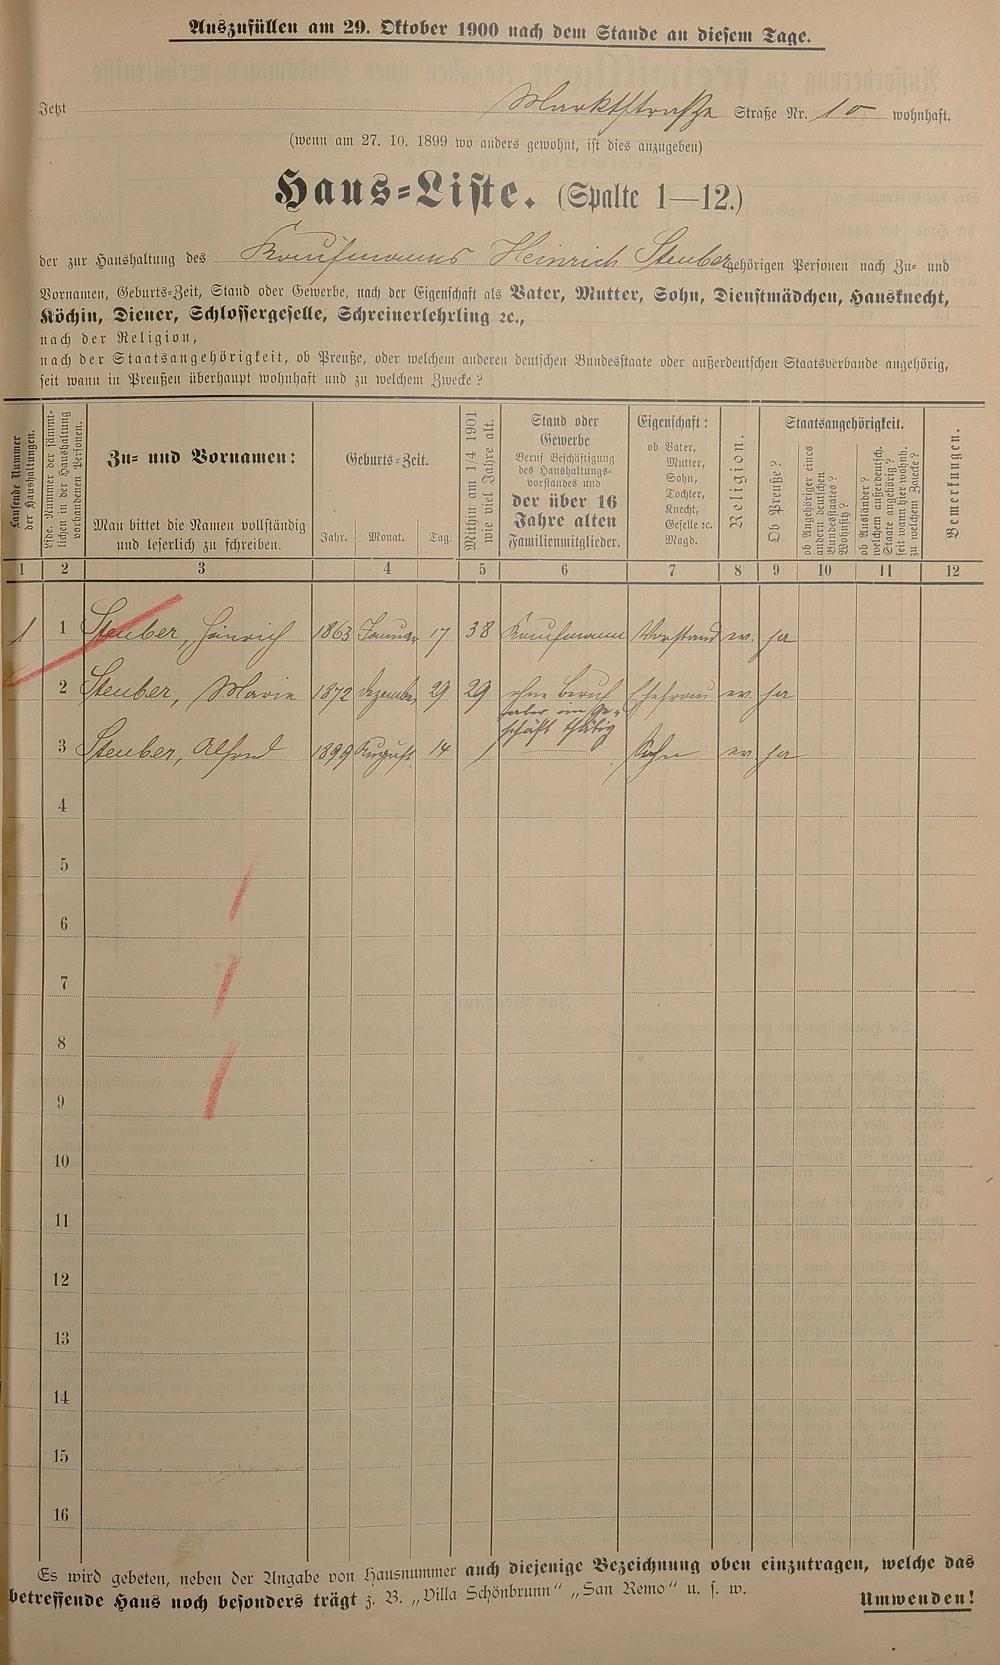 Auszufüllen am 29. Oktober 1900 nach dem Stande an diesem Tage.
Jetzt Marktstraße Straße Nr. 10 wohnhaft.
(wenn am 27. 10. 1899 wo anders gewohnt, ist dies anzugeben)
Haus-Liste. (Spalte 1—12.)
der zur Haushaltung des Kaufmanns Heinrich Steuber gehörigen Personen nach Zu- und
Vornamen, Geburts-Zeit, Stand oder Gewerbe, nach der Eigenschaft als Vater, Mutter, Sohn, Dienstmädchen, Hausknecht,
Köchin, Diener, Schlossergeselle, Schreinerlehrling ꝛc.,
nach der Religion,
nach der Staatsangehörigkeit, ob Preuße, oder welchem anderen deutschen Bundesstaate oder außerdeutschen Staatsverbande angehörig,
seit wann in Preußen überhaupt wohnhaft und zu welchem Zwecke?
Laufende Nummer
der Haushaltungen.
Lfde. Nummer der sämmt-
lichen in der Haushaltung
vorhandenen Personen.
Zu- und Vornamen:
Man bittet die Namen vollständig
und leserlich zu schreiben.
Geburts-Zeit.
Jahr. Monat. Tag.
Mithin am 1/4 1901
wie viel Jahre alt.
Stand oder
Gewerbe
Beruf Beschäftigung
des Haushaltungs-
vorstandes und
der über 16
Jahre alten
Familienmitglieder.
Eigenschaft:
ob Vater,
Mutter,
Sohn,
Tochter,
Knecht,
Geselle ꝛc.
Magd.
Religion.
Staatsangehörigkeit.
Ob Preuße?
ob Angehöriger eines
andern deutschen
Bundesstaates?
Wohnsitz?
ob Ausländer?
welchem außerdeutsch.
Staate angehörig?
seit wann hier wohnh.
zu welchem Zwecke?
Bemerkungen.
1 2 3 4 5 6 7 8 9 10 11 12
1 1 Steuber, Heinrich 1863 Januar 17 38 Kaufmann Vorstand ev. ja
2 Steuber, Marie 1872 Dezember 29 29 ohne Beruf Ehefrau ev. ja
aber im Ge-
schäft thätig
3 Steuber, Alfred 1899 August 14 Sohn ev. ja
4
5
6
7
8
9
10
11
12
13
14
15
16
Es wird gebeten, neben der Angabe von Hausnummer auch diejenige Bezeichnung oben einzutragen, welche das
betreffende Haus noch besonders trägt z. B. „Villa Schönbrunn“ „San Remo“ u. s. w.
Umwenden!